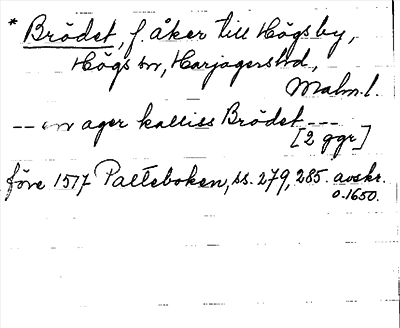 * Brödet, f. åker till Högsby,
Högs sn, Harjagers hd,
Malm. l.
-- en ager kalliss Brödet ---
[2 ggr]
före 1517 Palteboken, ss. 279, 285. avskr.
o. 1650.